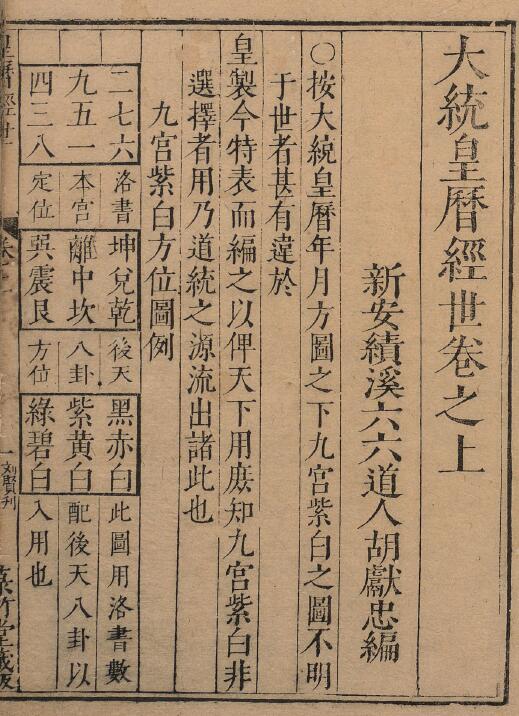 大統皇曆經世卷之上
新安績溪六六道人胡獻忠編
○按大統皇曆年月方圖之下九宮紫白之圖不明
于世者甚有違於
皇製今特表而編之以俾天下用庶知九宮紫白非
選擇者用乃道統之源流出諸此也
九宮紫白方位圖例
二七六 洛書 坤兌乾 後天 黑赤白 此圖用洛書數
九五一 本宮 離中坎 八卦 紫黃白 配後天八卦以
四三八 定位 巽震艮 方位 綠碧白 入用也
皇曆經世
卷上
一
刘賢刊